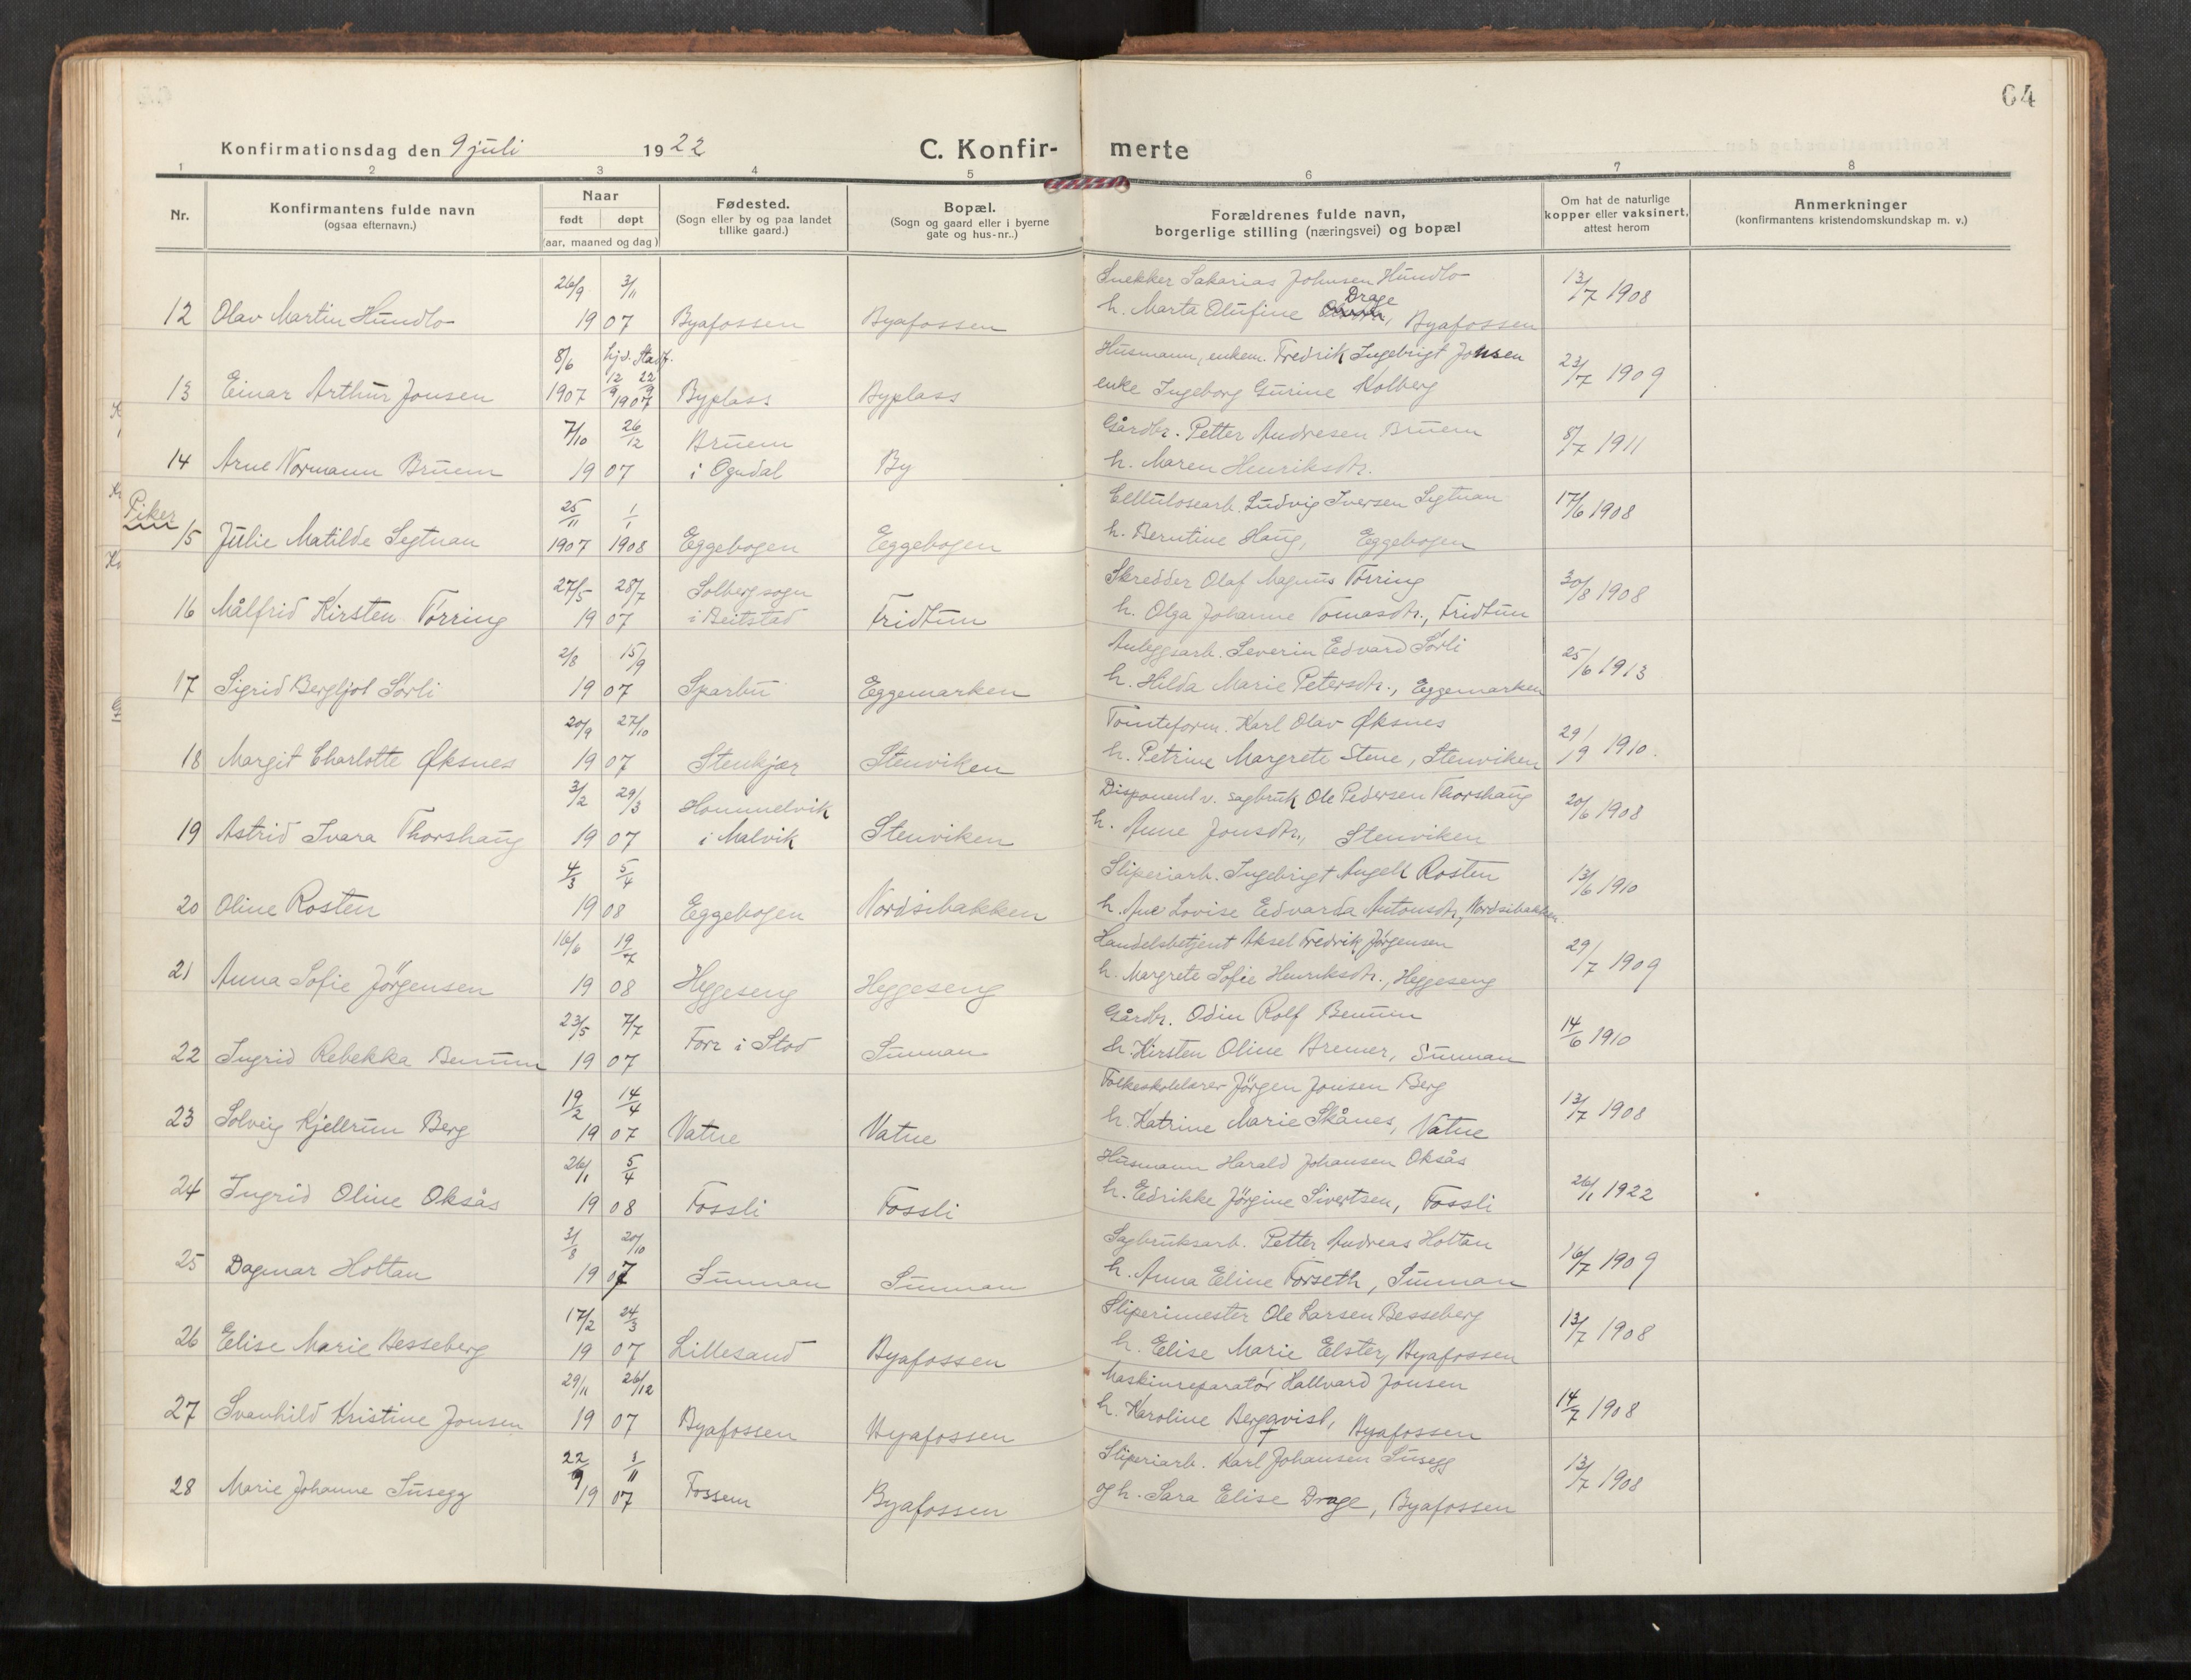 64
Konfirmationsdag den 9 juli 1922
C. Konfir-
merte
1 2 3 4 5 6 7 8
Nr.
Konfirmantens fulde navn
(ogsaa efternavn.)
Naar
født døpt
(aar, maaned og dag)
Fødested.
(Sogn eller by og paa landet
tillike gaard.)
Bopæl.
(Sogn og gaard eller i byerne
gate og hus-nr..)
Forældrenes fulde navn,
borgerlige stilling (næringsvei) og bopæl
Om hat de naturlige
kopper eller vaksinert,
attest herom
Anmerkninger
(konfirmantens kristendomskundskap m. v.)
26/9 3/11 Snekker Sakarias Johnsen Hundlo 13/7 1908
12 Olav Martin Hundlo 1907 Byafossen Byafossen h. Marta Olufine Drage, Byafossen
8/6 hj.d. Stadf. Husmann, enkem. Fredrik Ingebrigt Johnsen 23/7 1909
13 Einar Arthur Jonsen 1907 12/9 22/9 1907 Byplass Byplass enke Ingeborg Gurine Kolberg
7/10 26/12 Bruem Gårdbr. Petter Andresen Bruem 8/7 1911
14 Arne Normann Bruem 1907 i Ogndal By h. Maren Henriksdtr.
Piker
25/11 1/1 Cellulosearb. Ludvig Iversen Segtnan 17/6 1908
15 Julie Matilde Segtnan 1907 1908 Eggebogen Eggebogen h. Berntine Haug, Eggebogen
27/5 28/7 Solberg sogn Skredder Olaf Magnus Tørring 30/8 1908
16 Målfrid Kirsten Tørring 1907 i Beitstad Fridtun h. Olga Johanne Tomasdtr., Fridtun
2/8 15/9 Anleggsarb. Severin Edvard Sørli 25/6 1913
17 Sigrid Bergljot Sørli 1907 Sparbu Eggemarken h. Hilda Marie Petersdtr., Eggemarken
20/9 27/10 Tomteform. Karl Olav Øksnes 29/9 1910.
18 Margit Charlotte Øksnes 1907 Stenkjær Stenviken h. Petrine Margrete Stene, Stenviken
3/2 29/3 Hommelvik Disponent v. sagbruk Ole Pedersen Thorshaug 20/6 1908
19 Astrid Ivara Thorshaug 1907 i Malvik Stenviken h. Anne Jonsdtr., Stenviken
4/3 5/4 Sliperiarb. Ingebrigt Angell Rosten 13/6 1910
20 Oline Rosten 1908 Eggebogen Nordsibakken h. Ane Lovise Edvarda Antonsdtr, Nordsibakken.
16/6 19/7 Handelsbetjent Aksel Fredrik Jørgensen 29/7 1909
21 Anna Sofie Jörgensen 1908 Heggeseng Heggeseng h. Margrete Sofie Henriksdtr., Heggeseng
23/5 7/7 Gårdbr. Odin Rolf Benum 14/6 1910
22 Ingrid Rebekka Benum 1907 Forr i Stod Sunnan h. Kirsten Oline Bremer, Sunnan
19/2 14/4 Folkeskolelærer Jörgen Jonsen Berg 13/7 1908
23 Solveig Kjellrun Berg 1907 Vatne Vatne h. Katrine Marie Skånes, Vatne
26/1 5/4 Husmann Harald Johansen Oksås 26/1 1922
24 Ingrid Oline Oksås 1908 Fossli Fossli h. Edrikke Jörgine Sivertsen, Fossli
31/8 20/10 Sagbruksarb. Petter Andreas Holtan 16/7 1909
25 Dagmar Holtan 1907 Sunnan Sunnan h. Anna Eline Forseth, Sunnan
17/2 24/3 Sliperimester Ole Larsen Besseberg 13/7 1908
26 Elise Marie Besseberg 1907 Lillesand Byafossen h. Elise Marie Elster, Byafossen
29/11 26/12 Maskinreparatør Hallvard Jonsen 14/7 1908
27 Svanhild Kristine Jonsen 1907 Byafossen Byafossen h. Karoline Bergqvist, Byafossen
22/9 1/11 Sliperiarb. Karl Johansen Susegg 13/7 1908
28 Marie Johanne Susegg 1907 Fossem Byafossen og h. Sara Elise Drage, Byafossen